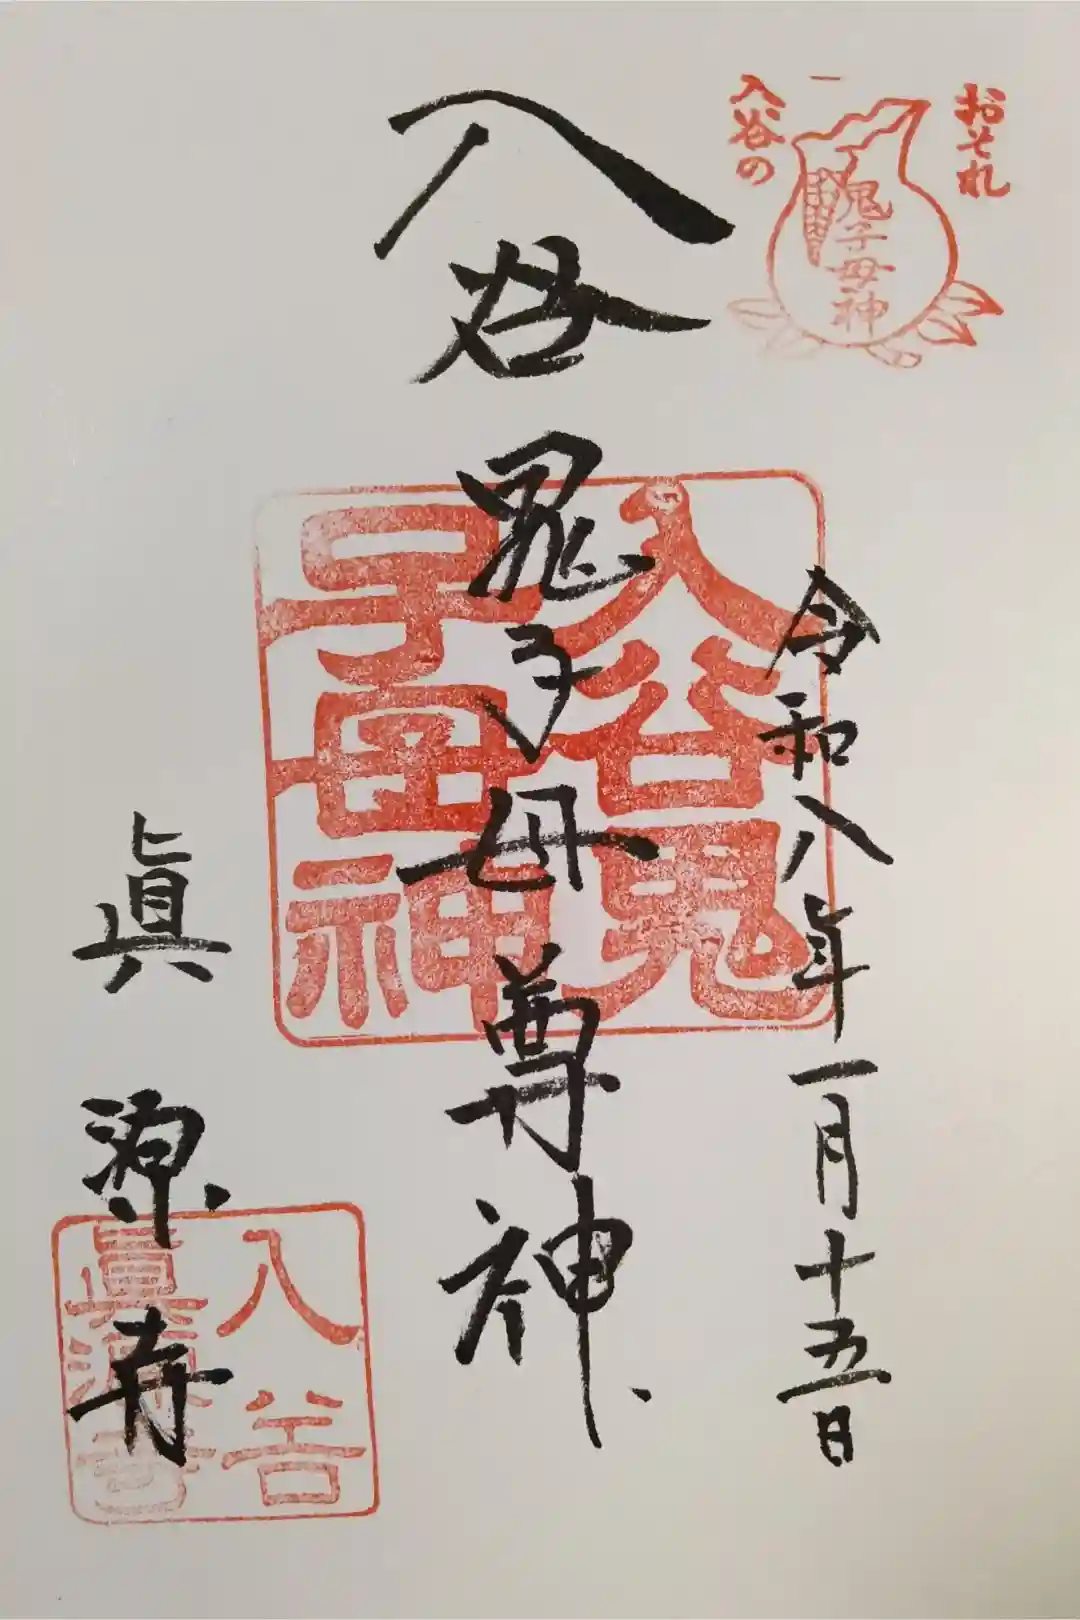 おそれ
入谷の
鬼子母神
令和八年一月十五日
入谷鬼子母尊神
入谷鬼
子母神
眞源寺
入谷
眞源寺